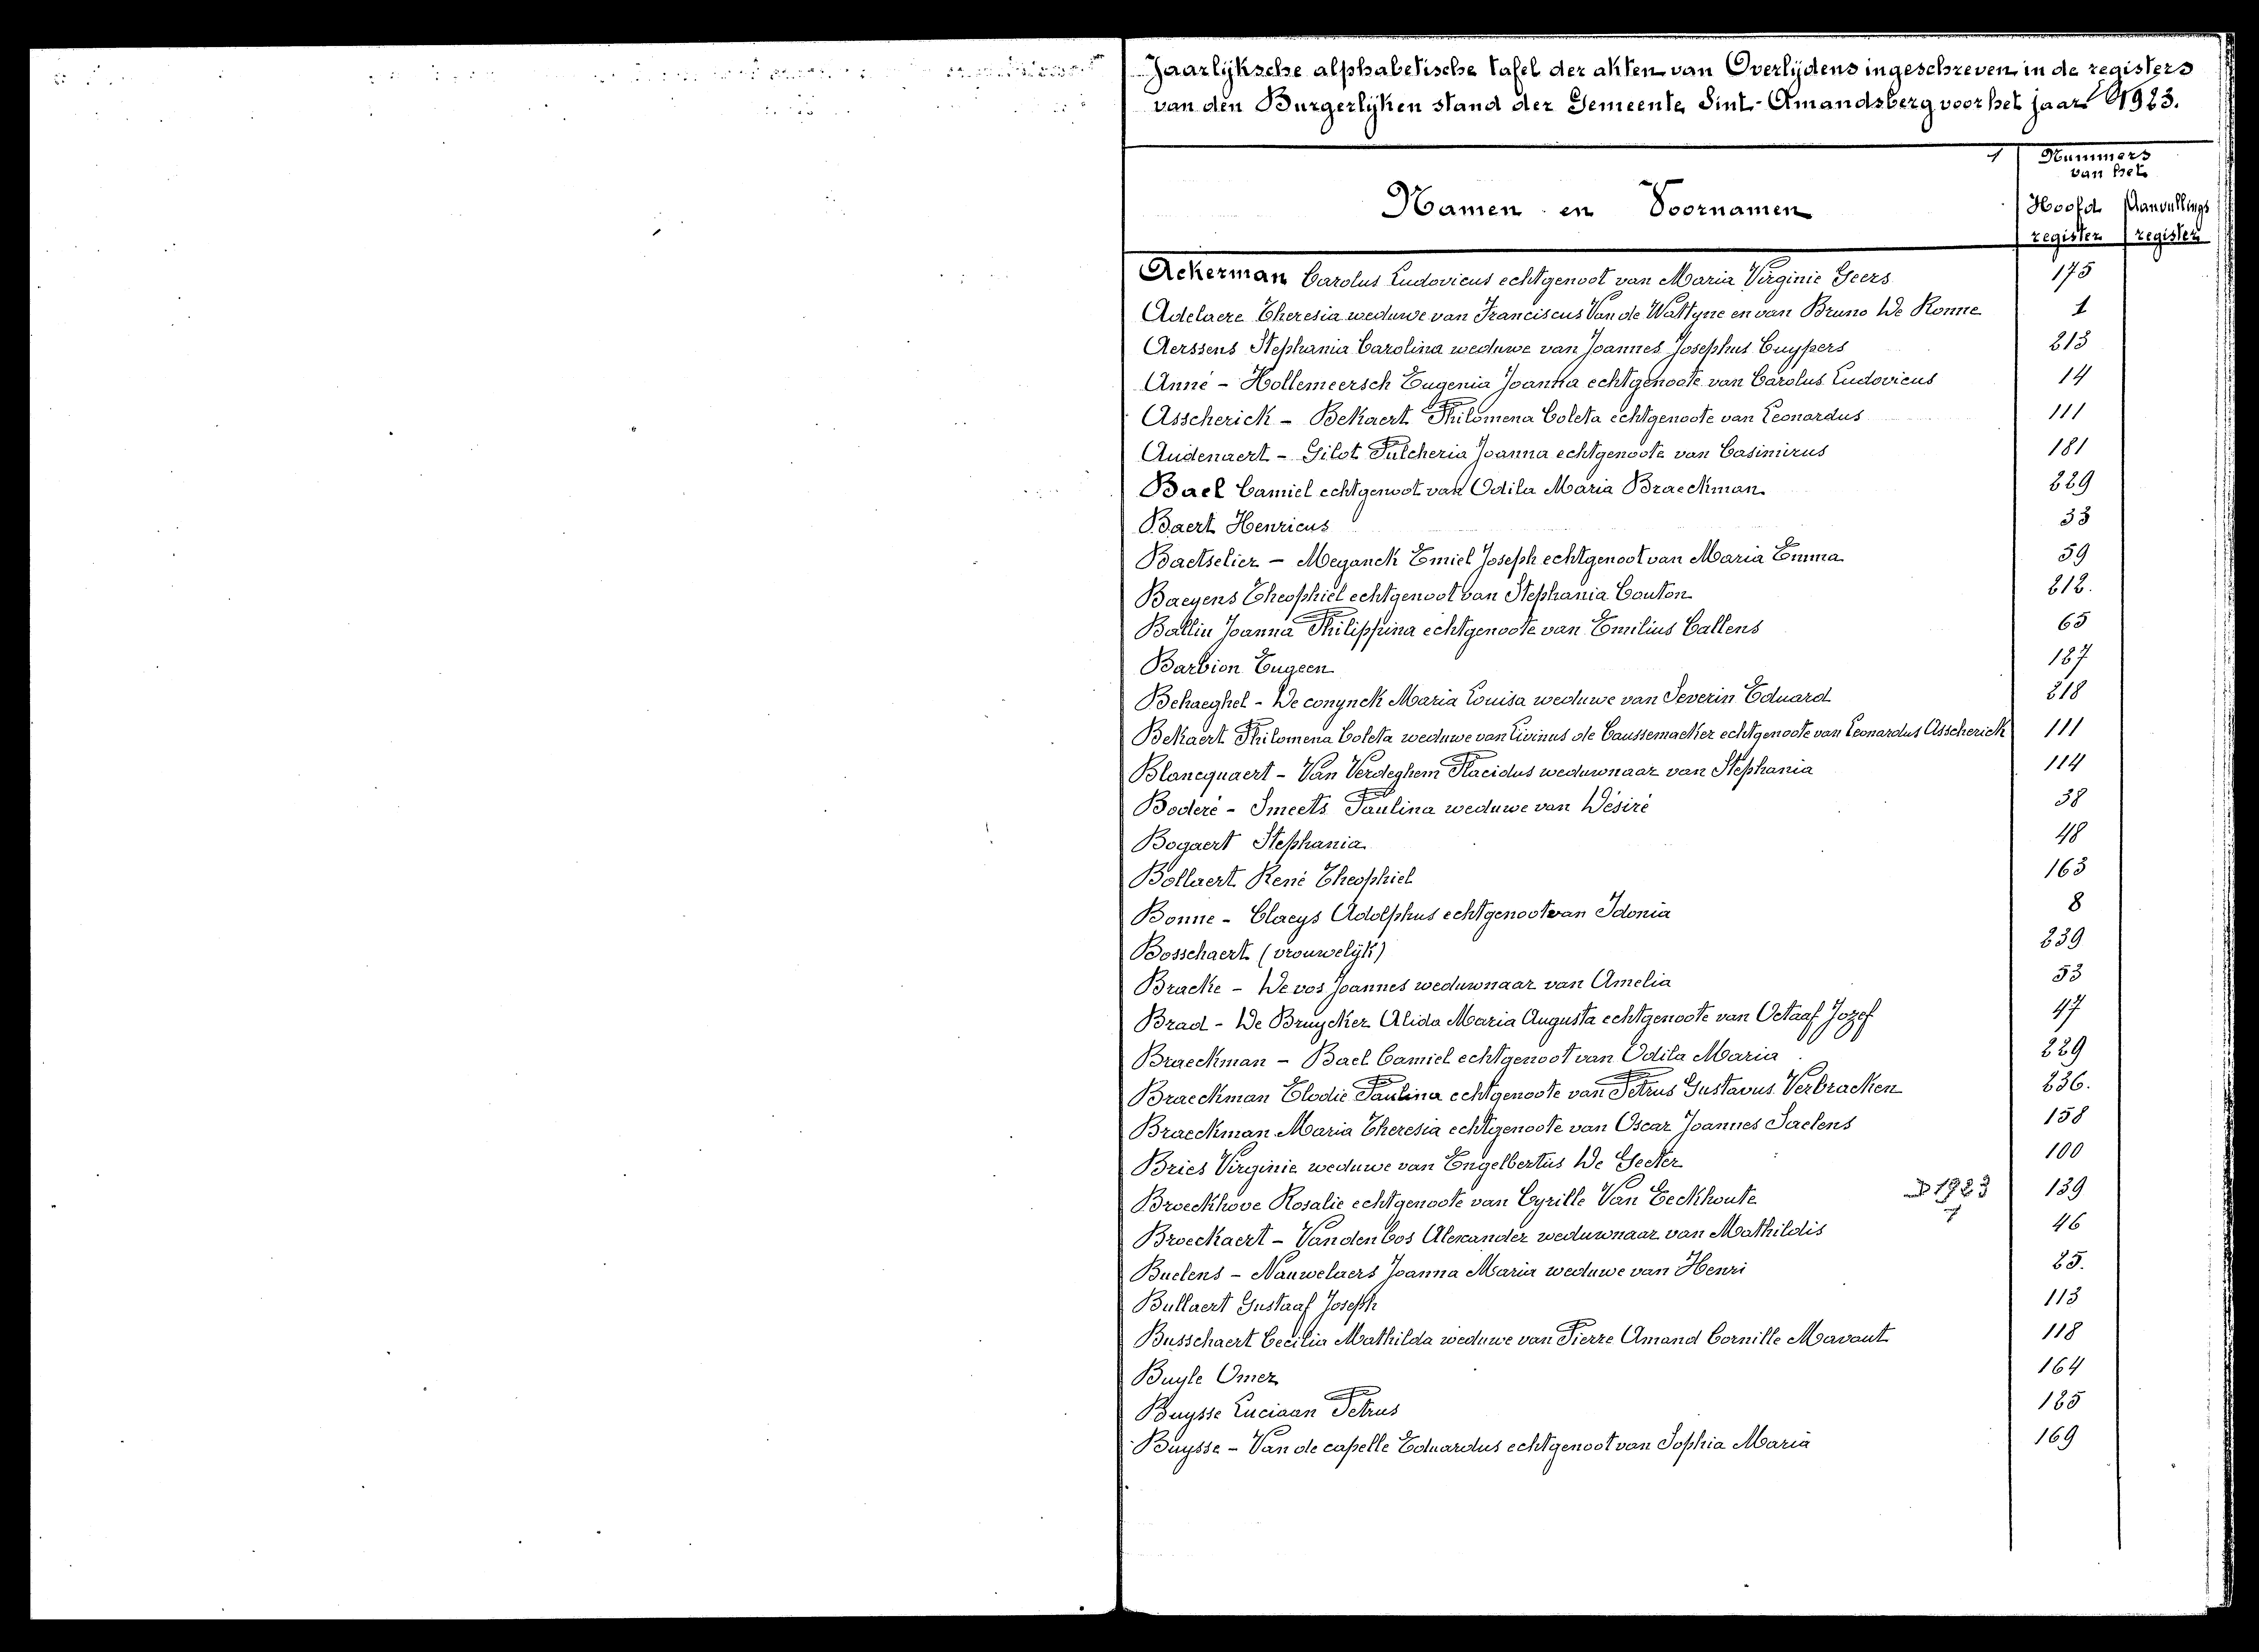 Jaarlijksche alphabetische tafel der akten van Overlijdens ingeschreven in de registers
van den Burgerlijken stand der Gemeente Sint-Amandsberg voor het jaar 1923.
1
Nummers
van het
Namen en Voornamen
Hoofd Aanvullings
register register
Ackerman Carolus Ludovicus echtgenoot van Maria Virginie Geers 175
Adelaere Theresia weduwe van Franciscus Van de Wattyne en van Bruno De Ronne 1
Aerssens Stephania Carolina weduwe van Joannes Josephus Cuypers 213
Anné - Hollemeersch Eugenia Joanna echtgenoote van Carolus Ludovicus 14
Asscherick - Bekaert Philomena Coleta echtgenoote van Leonardus 111
Audenaert - Gilot Pulcheria Joanna echtgenoote van Casimirus 181
Bael Camiel echtgenoot van Odila Maria Braeckman 229
Baert Henricus 33
Baetselier - Meganck Emiel Joseph echtgenoot van Maria Emma 59
Baeyens Theophiel echtgenoot van Stephania Couton 212.
Ballin Joanna Philippina echtgenoote van Emilius Callens 65
Barbion Eugeen 127
Behaeghel - De conynck Maria Louisa weduwe van Severin Eduard 218
Bekaert Philomena Coleta weduwe van Livinus de Caussemacker echtgenoote van Leonardus Asscherick 111
Blancquaert - Van Verdeghem Placidus weduwnaar van Stephania 114
Boderé - Smeets Paulina weduwe van Désiré 38
Bogaert Stephania 48
Bollaert René Theophiel 163
Bonne - Claeys Adolphus echtgenoot van Idonia 8
Bosschaert (vrouwelijk) 239
Bracke - De vos Joannes weduwnaar van Amelia 53
Brad - De Bruycker Alida Maria Augusta echtgenoote van Octaaf Jozef 47
Braeckman - Bael Camiel echtgenoot van Odila Maria 229
Braeckman Elodie Paulina echtgenoote van Petrus Gustavus Verbracken 236.
Braeckman Maria Theresia echtgenoote van Oscar Joannes Saelens 158
Bries Virginie weduwe van Engelbertus De Geeter 100
Broeckhove Rosalie echtgenoote van Cyrille Van Eeckhoute D 1923 139
1
Broeckaert - Vanden bos Alexander weduwnaar van Mathildis 46
Buelens - Nauwelaers Joanna Maria weduwe van Henri 25.
Bullaert Gustaaf Joseph 113
Busschaert Cecilia Mathilda weduwe van Pierre Amand Cornille Mavaut 118
Buyle Omer 164
Buysse Luciaan Petrus 125
Buysse - Van de capelle Eduardus echtgenoot van Sophia Maria 169